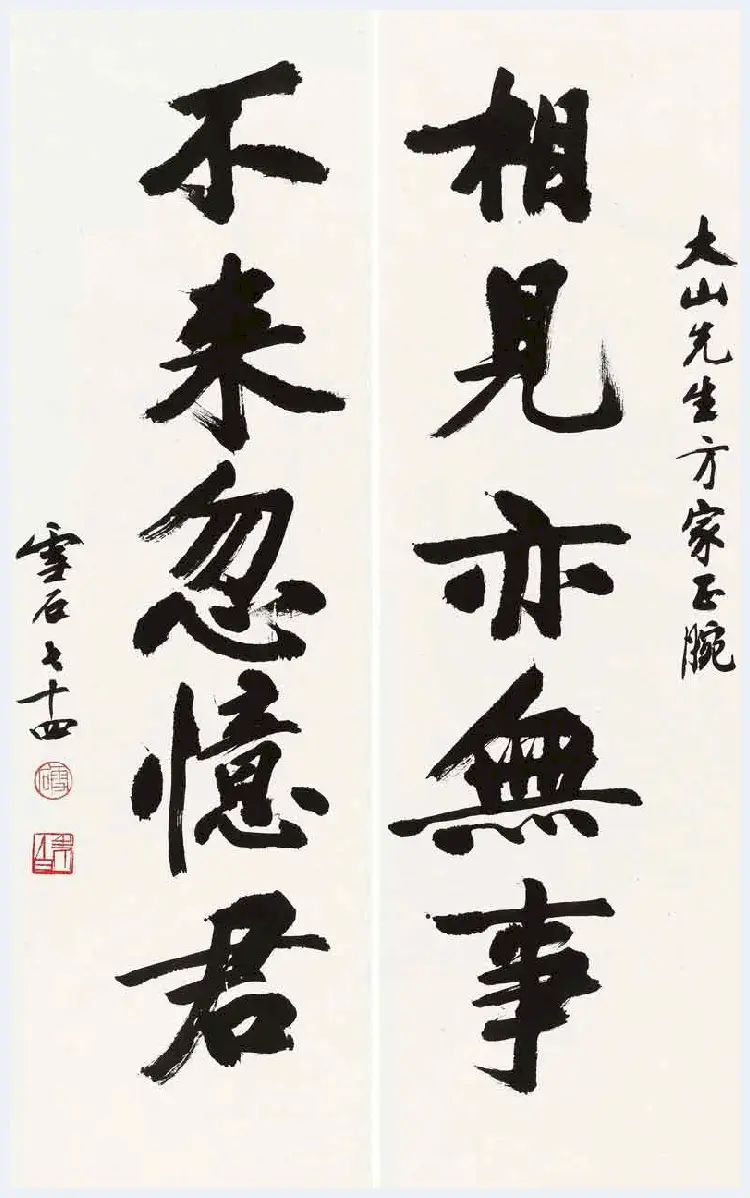 大山先生方家正腕
相見亦無事
不来忽憶君
雪石七十四